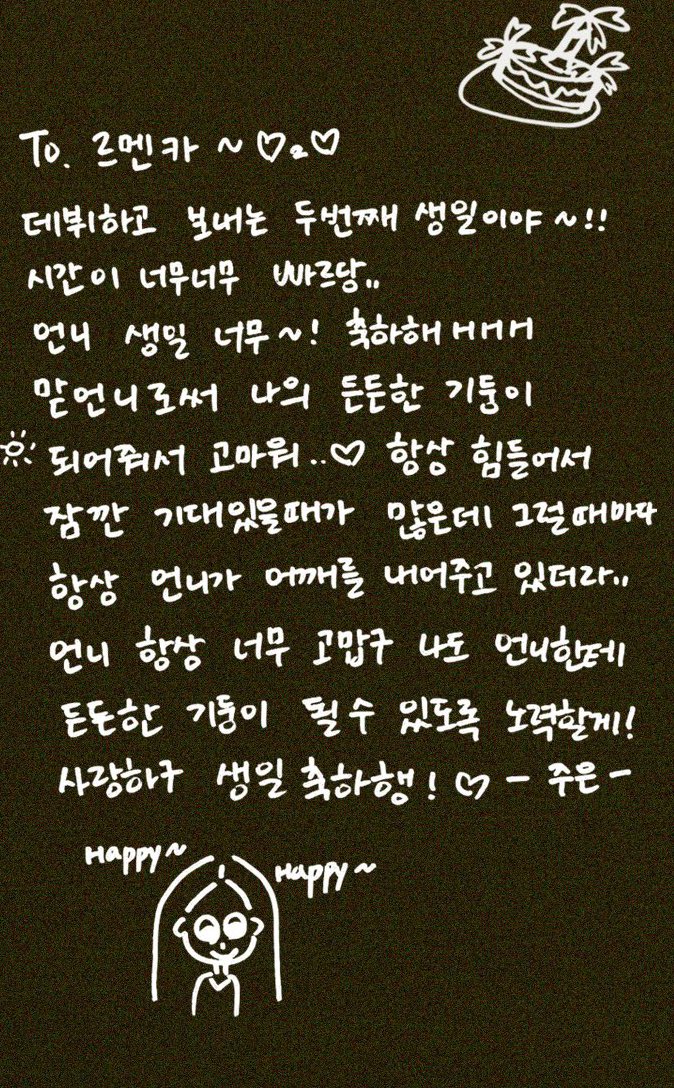 To. 르멘카 ~ ♡.2♡
데뷔하고 보내는 두번째 생일이야 ~!!
시간이 너무너무 빠르당..
언니 생일 너무~! 축하해ㅐㅐㅐ
맏언니로써 나의 든든한 기둥이
되어줘서 고마워..♡ 항상 힘들어서
잠깐 기대있을때가 많은데 그럴때마다
항상 언니가 어깨를 내어주고 있더라..
언니 항상 너무 고맙구 나도 언니한테
든든한 기둥이 될 수 있도록 노력할게!
사랑하구 생일 축하행! ♡ - 주은 -
Happy~
Happy~